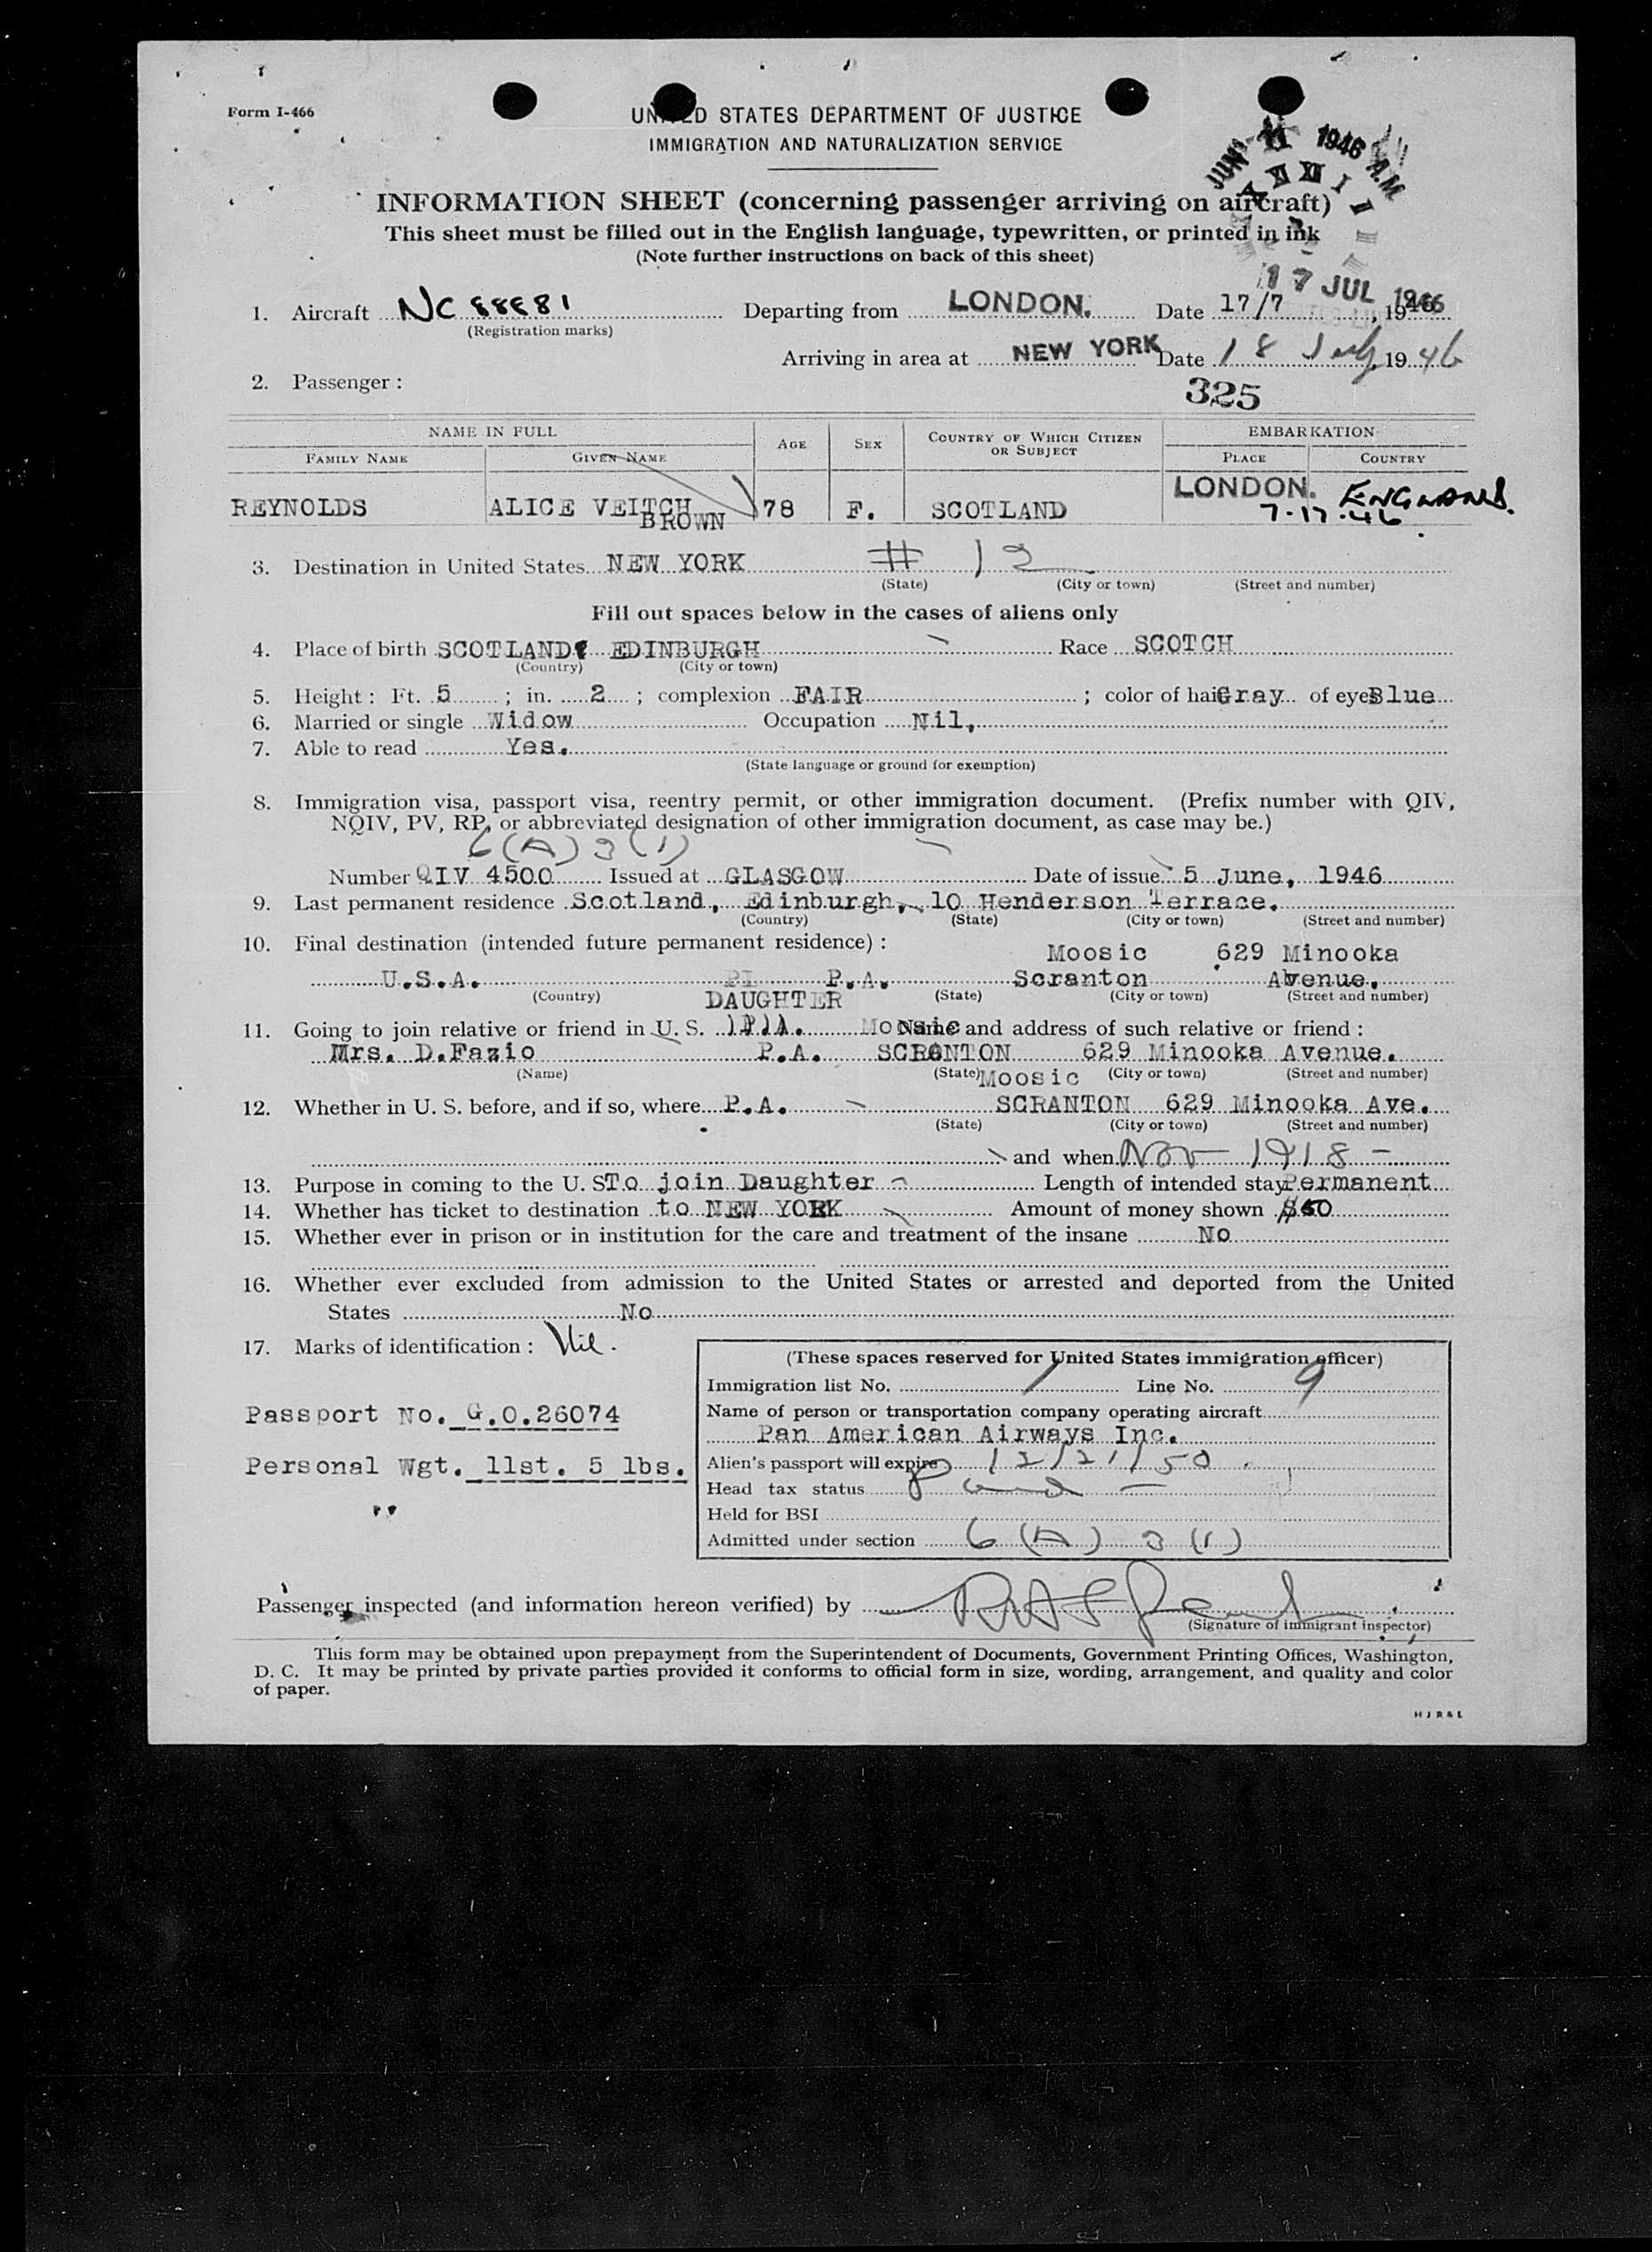 Form I-466
UNITED STATES DEPARTMENT OF JUSTICE
IMMIGRATION AND NATURALIZATION SERVICE
JUN 1946 A.M.
INFORMATION SHEET (concerning passenger arriving on aircraft)
This sheet must be filled out in the English language, typewritten, or printed in ink
(Note further instructions on back of this sheet)
17 JUL 1946
1. Aircraft NC 88881 Departing from LONDON. Date 17/7, 1946
(Registration marks)
Arriving in area at NEW YORK Date 18 July, 19 46
2. Passenger :
325
NAME IN FULL AGE SEX COUNTRY OF WHICH CITIZEN OR SUBJECT EMBARKATION
FAMILY NAME GIVEN NAME PLACE COUNTRY
REYNOLDS ALICE VEITCH BROWN 78 F. SCOTLAND LONDON. ENGLAND.
7-17-46
3. Destination in United States NEW YORK # 12
(State) (City or town) (Street and number)
Fill out spaces below in the cases of aliens only
4. Place of birth SCOTLAND EDINBURGH Race SCOTCH
(Country) (City or town)
5. Height : Ft. 5 ; in. 2 ; complexion FAIR ; color of hair Gray of eyes Blue
6. Married or single Widow Occupation Nil,
7. Able to read Yes.
(State language or ground for exemption)
8. Immigration visa, passport visa, reentry permit, or other immigration document. (Prefix number with QIV,
NQIV, PV, RP, or abbreviated designation of other immigration document, as case may be.)
6 (A) 3 (1)
Number QIV 4500 Issued at GLASGOW Date of issue 5 June, 1946
9. Last permanent residence Scotland, Edinburgh, 10 Henderson Terrace.
(Country) (State) (City or town) (Street and number)
10. Final destination (intended future permanent residence) :
Moosic 629 Minooka
U.S.A. P.A. Scranton Avenue.
(Country) (State) (City or town) (Street and number)
DAUGHTER
11. Going to join relative or friend in U. S. Moosic Name and address of such relative or friend :
Mrs. D.Fazio P.A. SCRANTON 629 Minooka Avenue.
(Name) (State) (City or town) (Street and number)
Moosic
12. Whether in U. S. before, and if so, where P.A. SCRANTON 629 Minooka Ave.
(State) (City or town) (Street and number)
and when Nov 1918 -
13. Purpose in coming to the U. S. To join Daughter Length of intended stay Permanent
14. Whether has ticket to destination to NEW YORK Amount of money shown
15. Whether ever in prison or in institution for the care and treatment of the insane No
16. Whether ever excluded from admission to the United States or arrested and deported from the United
States No
17. Marks of identification : Nil.
(These spaces reserved for United States immigration officer)
Immigration list No. 1 Line No. 9
Name of person or transportation company operating aircraft
Pan American Airways Inc.
Passport No. G.O.26074
Alien's passport will expire 12/21/50
Personal Wgt. 11st. 5 lbs.
Head tax status
Held for BSI
Admitted under section 6 (A) 3 (1)
Passenger inspected (and information hereon verified) by
(Signature of immigrant inspector)
This form may be obtained upon prepayment from the Superintendent of Documents, Government Printing Offices, Washington,
D. C. It may be printed by private parties provided it conforms to official form in size, wording, arrangement, and quality and color
of paper.
H J R & L